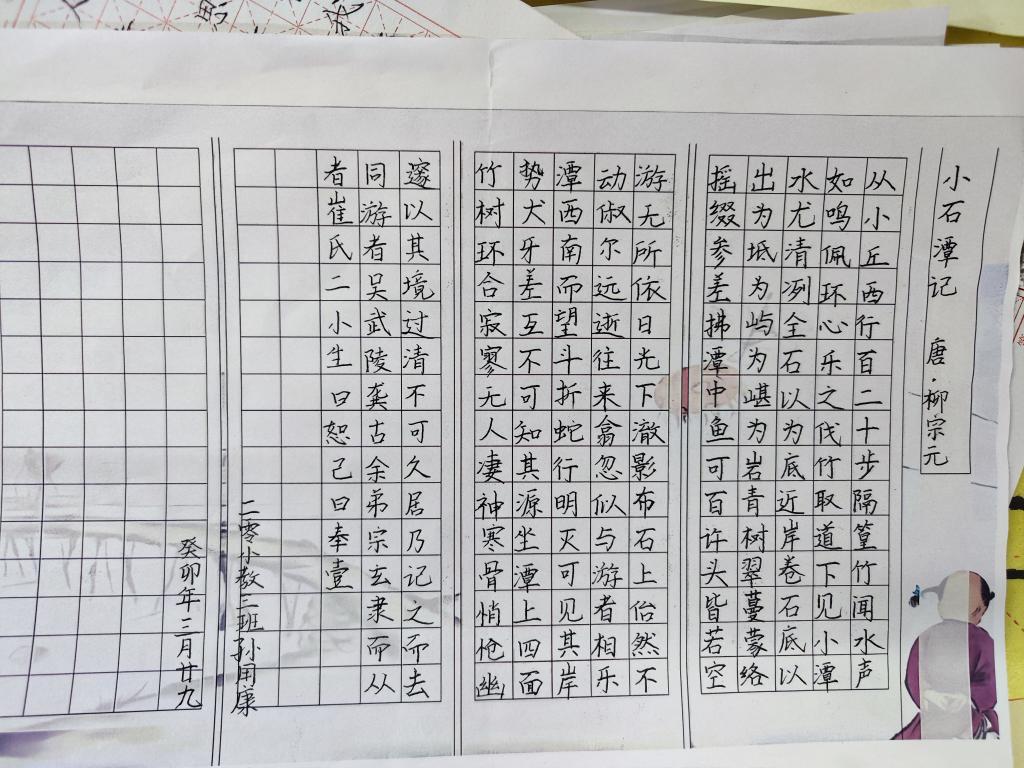 小石潭记 唐·柳宗元
从小丘西行百二十步隔篁竹闻水声
如鸣佩环心乐之伐竹取道下见小潭
水尤清冽全石以为底近岸卷石底以
出为坻为屿为嵁为岩青树翠蔓蒙络
摇缀参差拂潭中鱼可百许头皆若空
游无所依日光下澈影布石上佁然不
动俶尔远逝往来翕忽似与游者相乐
潭西南而望斗折蛇行明灭可见其岸
势犬牙差互不可知其源坐潭上四面
竹树环合寂寥无人凄神寒骨悄怆幽
邃以其境过清不可久居乃记之而去
同游者吴武陵龚古余弟宗玄隶而从
者崔氏二小生曰恕己曰奉壹
二零小教三班孙用康
癸卯年三月廿九